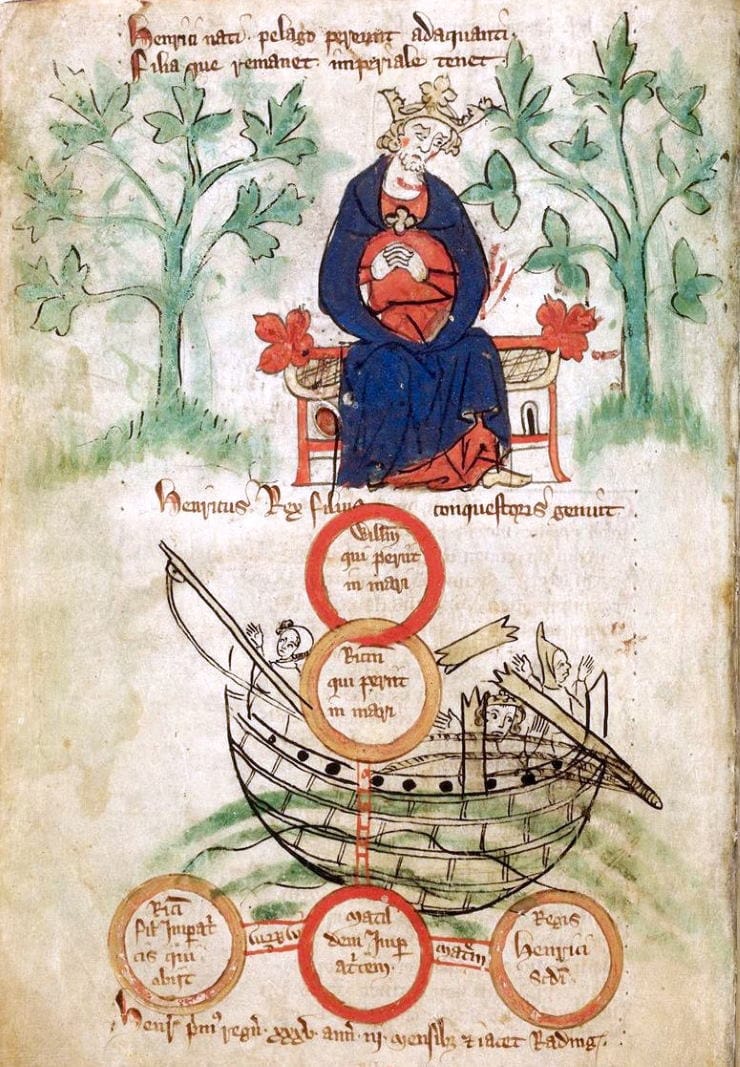 Henrici nati pelago perierunt adaquanti
Filia que remanet imperiale tenet
Henricus Rex filius conquestoris genuit
Willm
qui perijt
in mari
Ricm
qui perijt
in mari
Rici
fil Impat
cis qui
obijt
matrem
matil
dem Imp
atcem
matrem
Regis
Henrici
scdi
Henr pm regn xxxv ann iii mensibz & iacet Rading